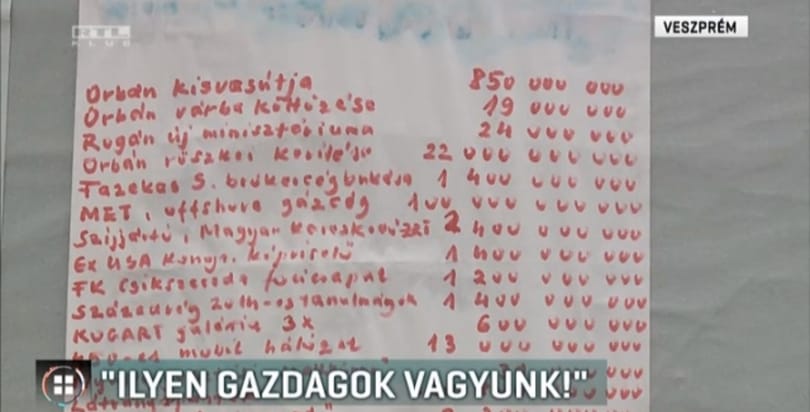 RTL
KLUB
VESZPRÉM
Orbán kisvasútja 850 000 000
Orbán várba költözése 19 000 000
Rogán új minisztériuma 24 000 000
Orbán röszkei kerítése 22 000 000 000
Fazekas S. brókercégbukása 1 400 000 000
MET, offshore gázcég 100 000 000 000
Szijjártó, Magyar Kereskedőház 2 400 000 000
Ex USA kongr. képviselő 1 400 000 000
FK Csíkszereda focicsapat 1 200 000 000
Századvég 2oth-es tanulmányok 1 400 000 000
KOGART galéria 3x 600 000 000
mobil hálózat 13 000 000 000
"ILYEN GAZDAGOK VAGYUNK!"